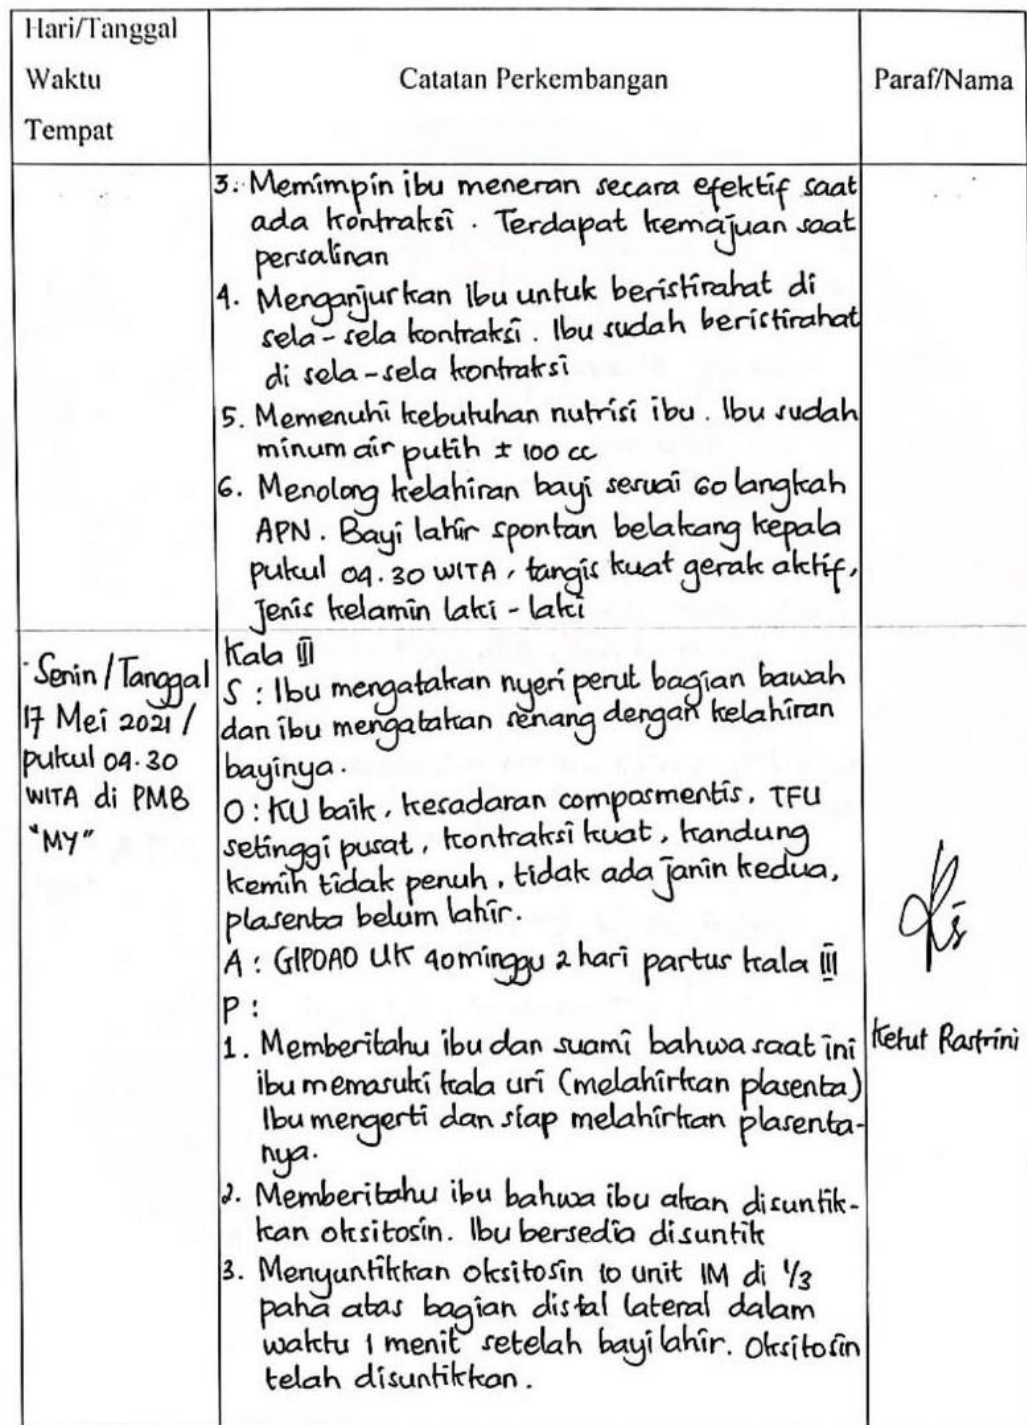 Hari/Tanggal
Waktu
Tempat
Catatan Perkembangan
Paraf/Nama
3. Memimpin ibu meneran secara efektif saat
ada kontraksi. Terdapat kemajuan saat
persalinan
4. Menganjurkan Ibu untuk beristirahat di
sela-sela kontraksi. Ibu sudah beristirahat
di sela-sela kontraksi
5. Memenuhi kebutuhan nutrisi ibu. Ibu sudah
minum air putih ± 100 cc
6. Menolong kelahiran bayi sesuai 60 langkah
APN. Bayi lahir spontan belakang kepala
pukul 04.30 WITA, tangis kuat gerak aktif,
Jenis kelamin laki-laki
Senin/Tanggal
17 Mei 2021/
pukul 04.30
WITA di PMB
"MY"
Kala III
S : Ibu mengatakan nyeri perut bagian bawah
dan ibu mengatakan senang dengan kelahiran
bayinya.
O : KU baik, kesadaran composmentis, TFU
setinggi pusat, kontraksi kuat, kandung
kemih tidak penuh, tidak ada janin kedua,
plasenta belum lahir.
A : G1P0A0 UK 40 minggu 2 hari partus kala III
P :
1. Memberitahu ibu dan suami bahwa saat ini
ibu memasuki kala uri (melahirkan plasenta)
Ibu mengerti dan siap melahirkan plasenta-
nya.
2. Memberitahu ibu bahwa ibu akan disuntik-
kan oksitosin. Ibu bersedia disuntik
3. Menyuntikkan oksitosin 10 unit IM di 1/3
paha atas bagian distal lateral dalam
waktu 1 menit setelah bayi lahir. Oksitosin
telah disuntikkan.
Ketut Rastrini